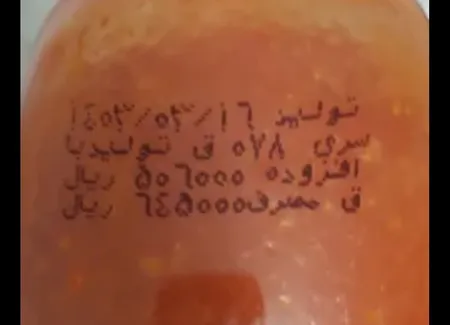 تولید ۱۴۰۳/۰۳/۱۶
سري ۰۷۸ ق تولیدبا
افزوده ۵۰۶۰۰۰ ریال
ق مصرف۶۴۵۰۰۰ ریال